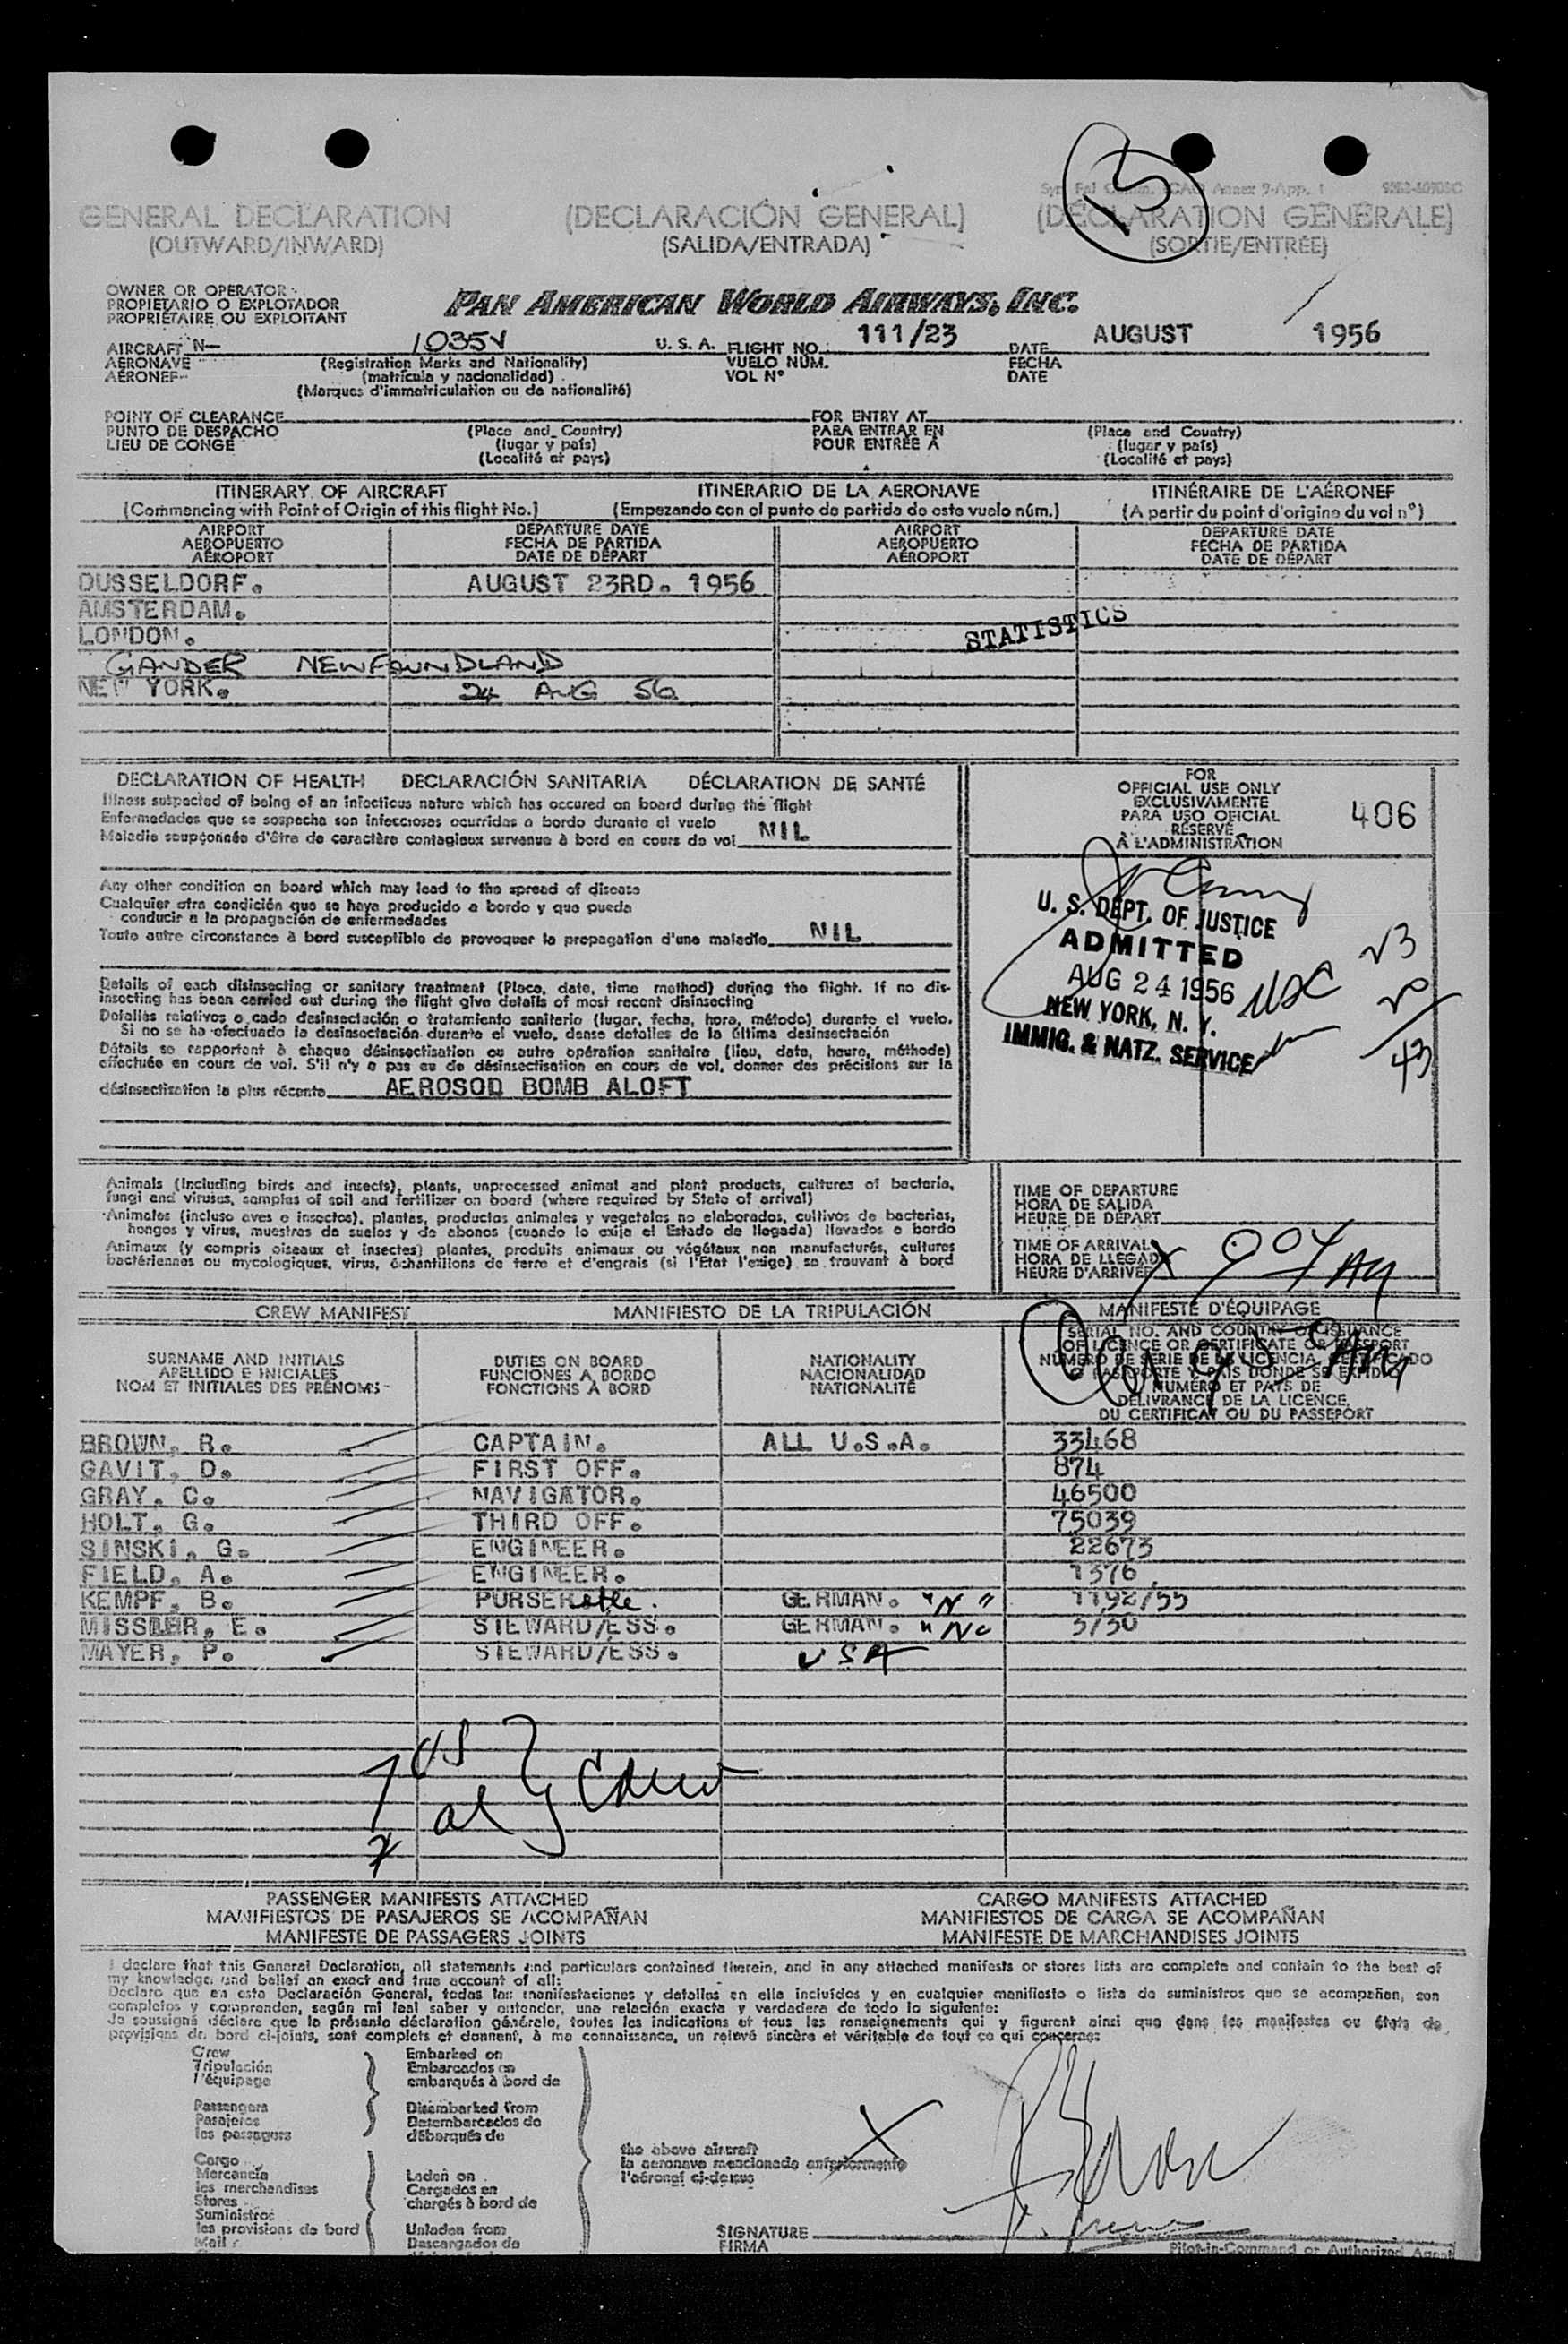 15
Annex 9-App. 1
GENERAL DECLARATION (DECLARACIÓN GENERAL) (DÉCLARATION GÉNÉRALE)
(OUTWARD/INWARD) (SALIDA/ENTRADA) (SORTIE/ENTRÉE)
OWNER OR OPERATOR
PROPIETARIO O EXPLOTADOR
PROPRIÉTAIRE OU EXPLOITANT
PAN AMERICAN WORLD AIRWAYS, INC.
AIRCRAFT N— 1035V U. S. A. FLIGHT NO. 111/23 DATE AUGUST 1956
AERONAVE (Registration Marks and Nationality) VUELO NÚM. FECHA
AÉRONEF (matrícula y nacionalidad) VOL Nº DATE
(Marques d'immatriculation ou de nationalité)
POINT OF CLEARANCE FOR ENTRY AT
PUNTO DE DESPACHO (Place and Country) PARA ENTRAR EN (Place and Country)
LIEU DE CONGÉ (lugar y país) POUR ENTRÉE À (lugar y país)
(Localité et pays) (Localité et pays)
ITINERARY OF AIRCRAFT ITINERARIO DE LA AERONAVE ITINÉRAIRE DE L'AÉRONEF
(Commencing with Point of Origin of this flight No.) (Empezando con el punto de partida de este vuelo núm.) (A partir du point d'origine du vol nº)
AIRPORT DEPARTURE DATE AIRPORT DEPARTURE DATE
AEROPUERTO FECHA DE PARTIDA AEROPUERTO FECHA DE PARTIDA
AÉROPORT DATE DE DÉPART AÉROPORT DATE DE DÉPART
DUSSELDORF. AUGUST 23RD. 1956
AMSTERDAM.
LONDON.
STATISTICS
GANDER NEWFOUNDLAND
NEW YORK. 24 AUG 56
DECLARATION OF HEALTH DECLARACIÓN SANITARIA DÉCLARATION DE SANTÉ
Illness suspected of being of an infectious nature which has occured on board during the flight
Enfermedades que se sospecha son infecciosas ocurridas a bordo durante el vuelo
Maladie soupçonnée d'être de caractère contagieux survenue à bord en cours de vol NIL
Any other condition on board which may lead to the spread of disease
Cualquier otra condición que se haya producido a bordo y que pueda
conducir a la propagación de enfermedades
Toute autre circonstance à bord susceptible de provoquer la propagation d'une maladie NIL
Details of each disinsecting or sanitary treatment (Place, date, time method) during the flight. If no dis-
insecting has been carried out during the flight give details of most recent disinsecting
Detalles relativos a cada desinsectación o tratamiento sanitario (lugar, fecha, hora, método) durante el vuelo.
Si no se ha efectuado la desinsectación durante el vuelo, dense detalles de la última desinsectación
Détails se rapportant à chaque désinsectisation ou autre opération sanitaire (lieu, date, heure, méthode)
effectuée en cours de vol. S'il n'y a pas eu de désinsectisation en cours de vol, donner des précisions sur la
désinsectisation la plus récente AEROSOD BOMB ALOFT
FOR
OFFICIAL USE ONLY
EXCLUSIVAMENTE
PARA USO OFICIAL
RÉSERVÉ
À L'ADMINISTRATION
406
U. S. DEPT. OF JUSTICE
ADMITTED
AUG 24 1956 USC
NEW YORK, N. Y.
IMMIG. & NATZ. SERVICE
43
Animals (including birds and insects), plants, unprocessed animal and plant products, cultures of bacteria,
fungi and viruses, samples of soil and fertilizer on board (where required by State of arrival)
Animales (incluso aves e insectos), plantas, productos animales y vegetales no elaborados, cultivos de bacterias,
hongos y virus, muestras de suelos y de abonos (cuando lo exija el Estado de llegada) llevados a bordo
Animaux (y compris oiseaux et insectes) plantes, produits animaux ou végétaux non manufacturés, cultures
bactériennes ou mycologiques, virus, échantillons de terre et d'engrais (si l'État l'exige) se trouvant à bord
TIME OF DEPARTURE
HORA DE SALIDA
HEURE DE DÉPART
TIME OF ARRIVAL
HORA DE LLEGADA X 904 AM
HEURE D'ARRIVÉE
CREW MANIFEST MANIFIESTO DE LA TRIPULACIÓN MANIFESTE D'ÉQUIPAGE
SURNAME AND INITIALS DUTIES ON BOARD NATIONALITY
APELLIDO E INICIALES FUNCIONES A BORDO NACIONALIDAD
NOM ET INITIALES DES PRÉNOMS FONCTIONS À BORD NATIONALITÉ
SERIAL NO. AND COUNTRY OF ISSUANCE
OF LICENCE OR CERTIFICATE OR PASSPORT
NÚMERO DE SERIE DE LA LICENCIA, CERTIFICADO
O PASAPORTE Y PAÍS DONDE SE EXPIDIÓ
NUMÉRO ET PAYS DE
DÉLIVRANCE DE LA LICENCE,
DU CERTIFICAT OU DU PASSEPORT
BROWN, R. CAPTAIN. ALL U.S.A. 33468
GAVIT, D. FIRST OFF. 874
GRAY, C. NAVIGATOR. 46500
HOLT, G. THIRD OFF. 75039
SINSKI, G. ENGINEER. 22673
FIELD, A. ENGINEER. 1376
KEMPF, B. PURSERette. GERMAN. "N" 1192/55
MISSLER, E. STEWARD/ESS. GERMAN. "N" 5/50
MAYER, P. STEWARD/ESS. USA
7 US
2 al } crew
PASSENGER MANIFESTS ATTACHED CARGO MANIFESTS ATTACHED
MANIFIESTOS DE PASAJEROS SE ACOMPAÑAN MANIFIESTOS DE CARGA SE ACOMPAÑAN
MANIFESTE DE PASSAGERS JOINTS MANIFESTE DE MARCHANDISES JOINTS
I declare that this General Declaration, all statements and particulars contained therein, and in any attached manifests or stores lists are complete and contain to the best of
my knowledge and belief an exact and true account of all:
Declaro que en esta Declaración General, todas las manifestaciones y detalles en ella incluídos y en cualquier manifiesto o lista de suministros que se acompañen, son
completos y comprenden, según mi leal saber y entender, una relación exacta y verdadera de todo lo siguiente:
Je soussigné déclare que la présente déclaration générale, toutes les indications et tous les renseignements qui y figurent ainsi que dans les manifestes ou états de
provisions de bord ci-joints, sont complets et donnent, à ma connaissance, un relevé sincère et véritable de tout ce qui concerne:
Crew Embarked on
Tripulación Embarcados en
l'équipage embarqués à bord de
Passengers Disembarked from
Pasajeros Desembarcados de
les passagers débarqués de
the above aircraft X
la aeronave mencionada anteriormente
l'aéronef ci-dessus
Cargo
Mercancía Laden on
les merchandises Cargados en
Stores chargés à bord de
Suministros
les provisions de bord Unladen from
Mail Descargados de
SIGNATURE
FIRMA
Pilot-in-Command or Authorized Agent